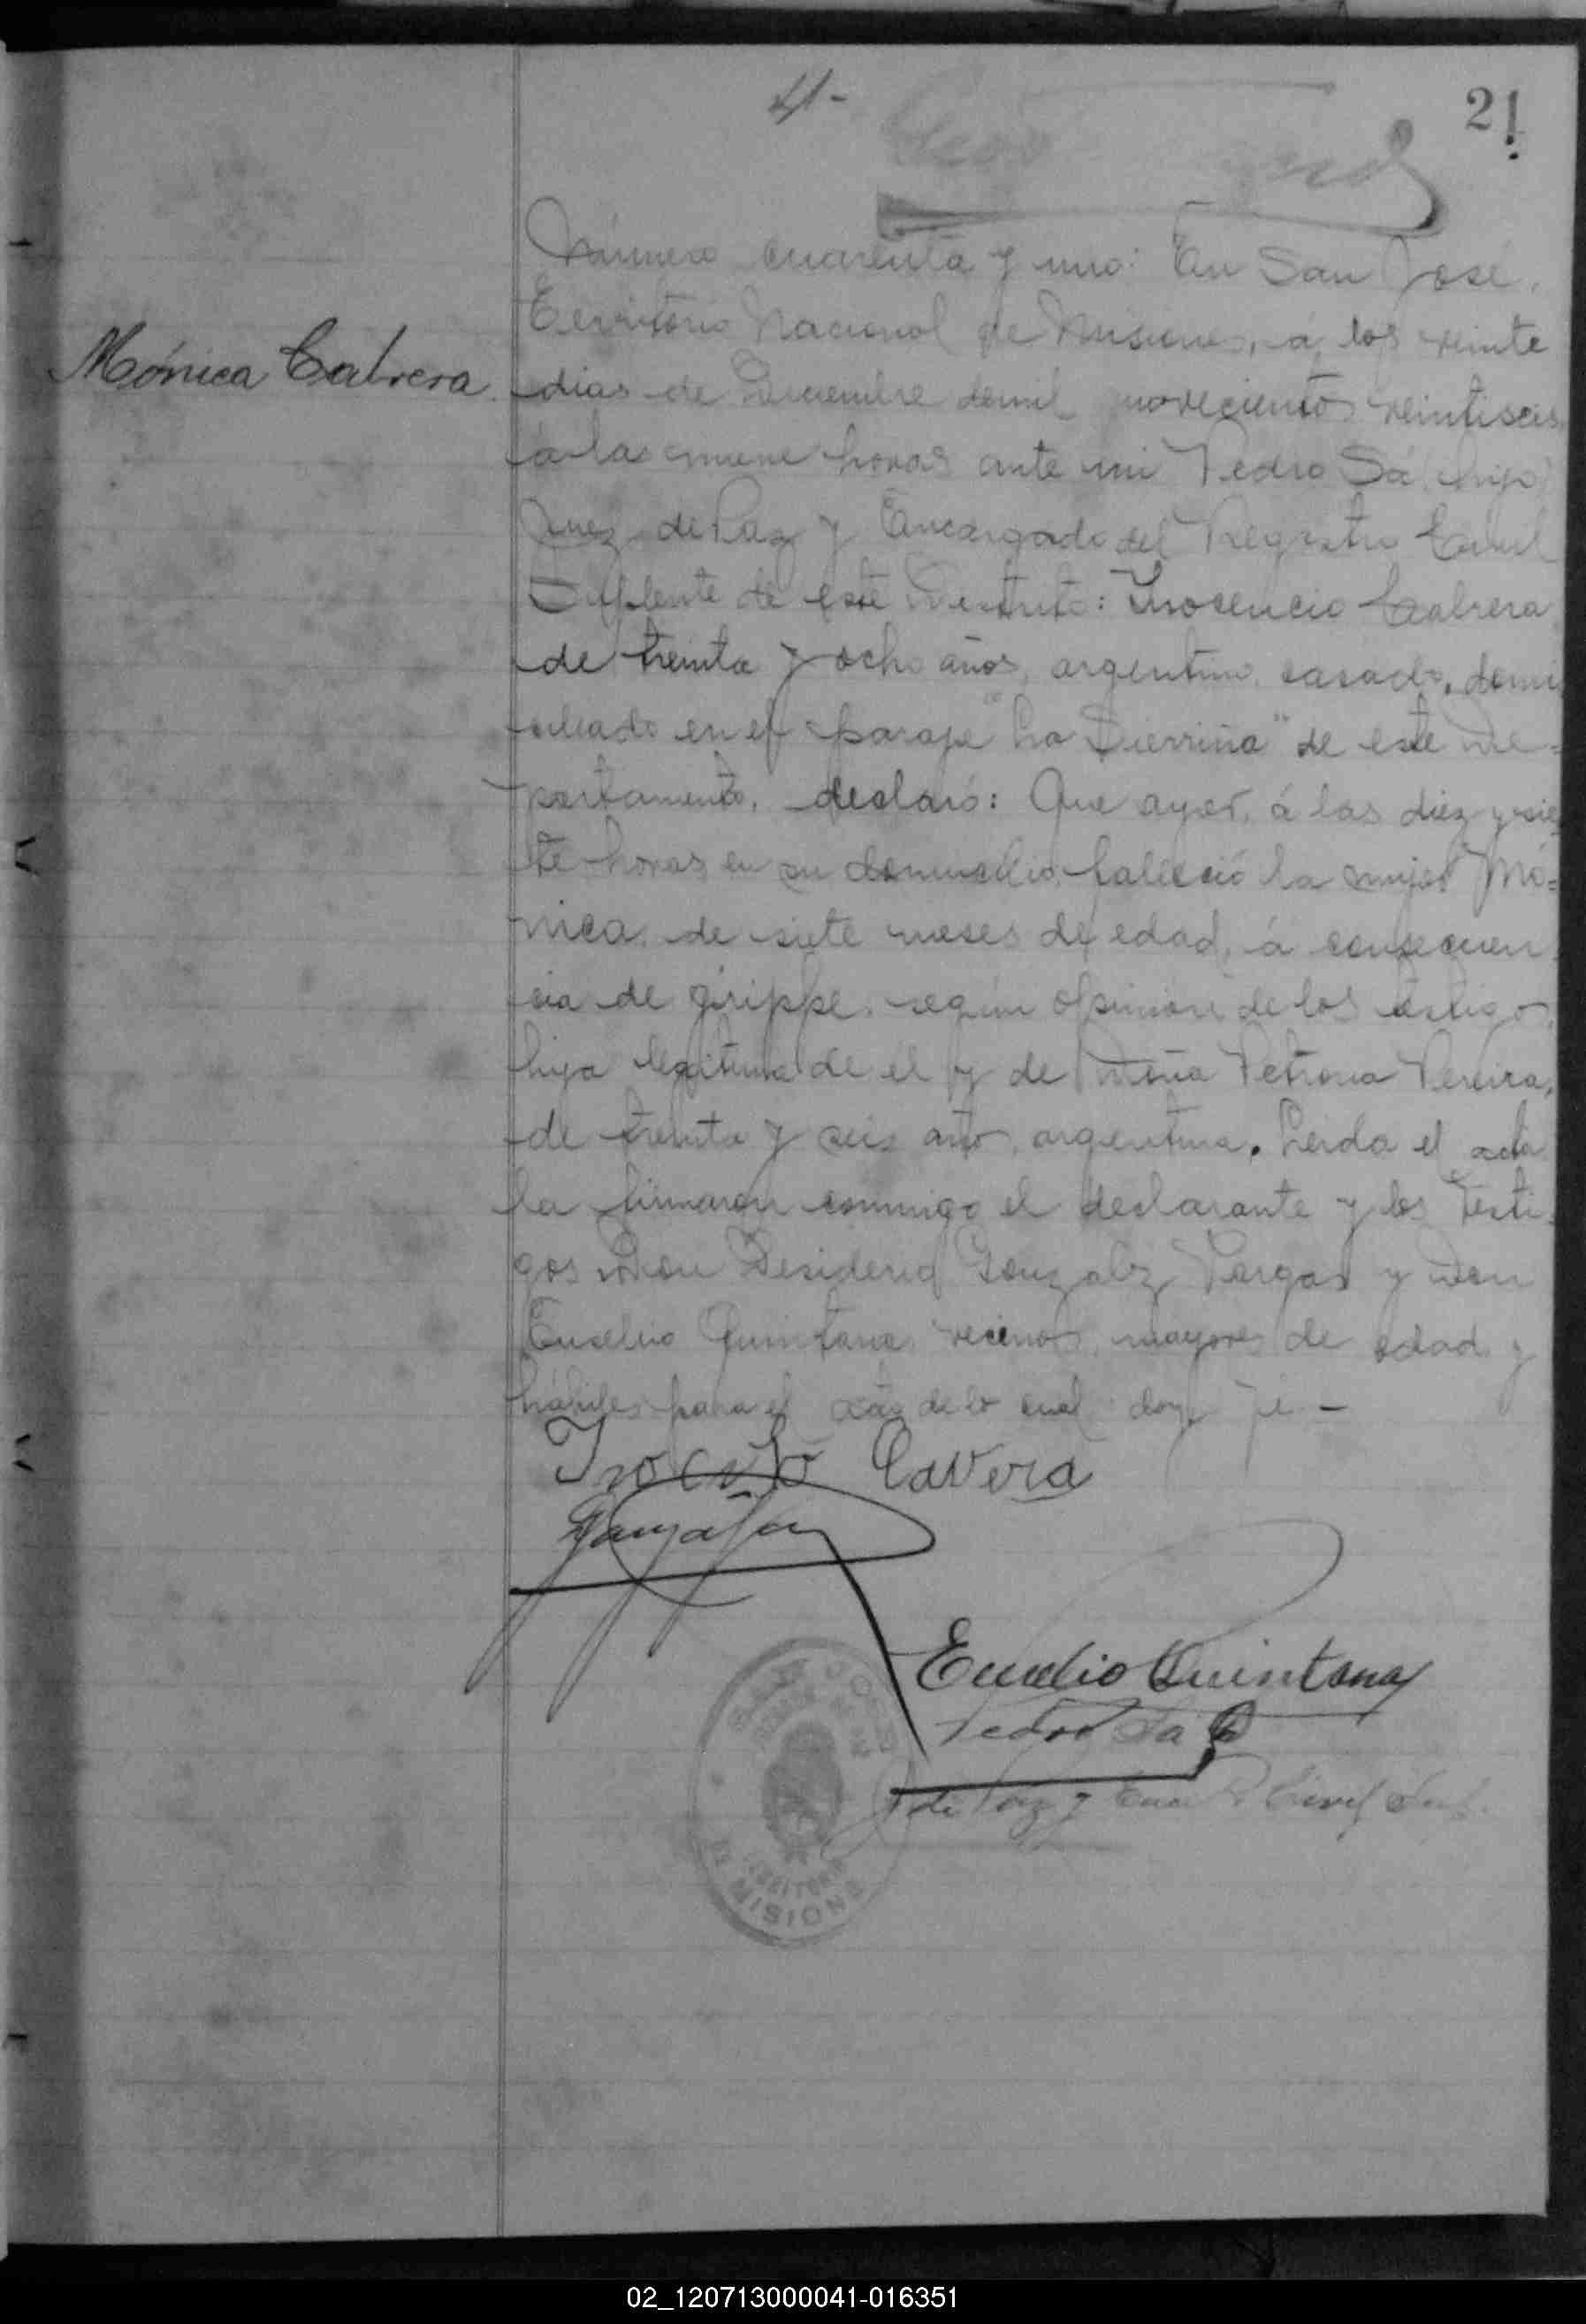 41-
21
Mónica Cabrera
Número cuarenta y uno: En San José,
Territorio Nacional de Misiones, á los veinte
dias de Diciembre demil novecientos veintiseis,
a las nueve horas ante mi Pedro Sá (hijo)
Juez de Paz y Encargado del Registro Civil
Suplente de este Distrito: Inocencio Cabrera
de treinta y ocho años, argentino, casado, domi
ciliado en el paraje "La Sierrita" de este De=
partamento, declaró: Que ayer, á las diez y sie
te horas en su domicilio, falleció la mujer Mó=
nica, de siete meses de edad, á consecuen
cia de grippe, según opinión de los testigos,
hija legitima de el y de Doña Petrona Pereira,
de treinta y seis años, argentina. Leida el acta
la firmaron conmigo el declarante y los testi
gos Don Desiderio Gonzalez Vargas y Don
Eusebio Quintana, vecinos, mayores de edad y
hábiles para el acto, de lo cual doy fé -
Inocño Cavera
Eucelio Quintana
Pedro Sa
J. de Paz y Enc. R. Civil Sup.
SAN JOSÉ
TERRITORIO
DE MISIONES
02_120713000041-016351